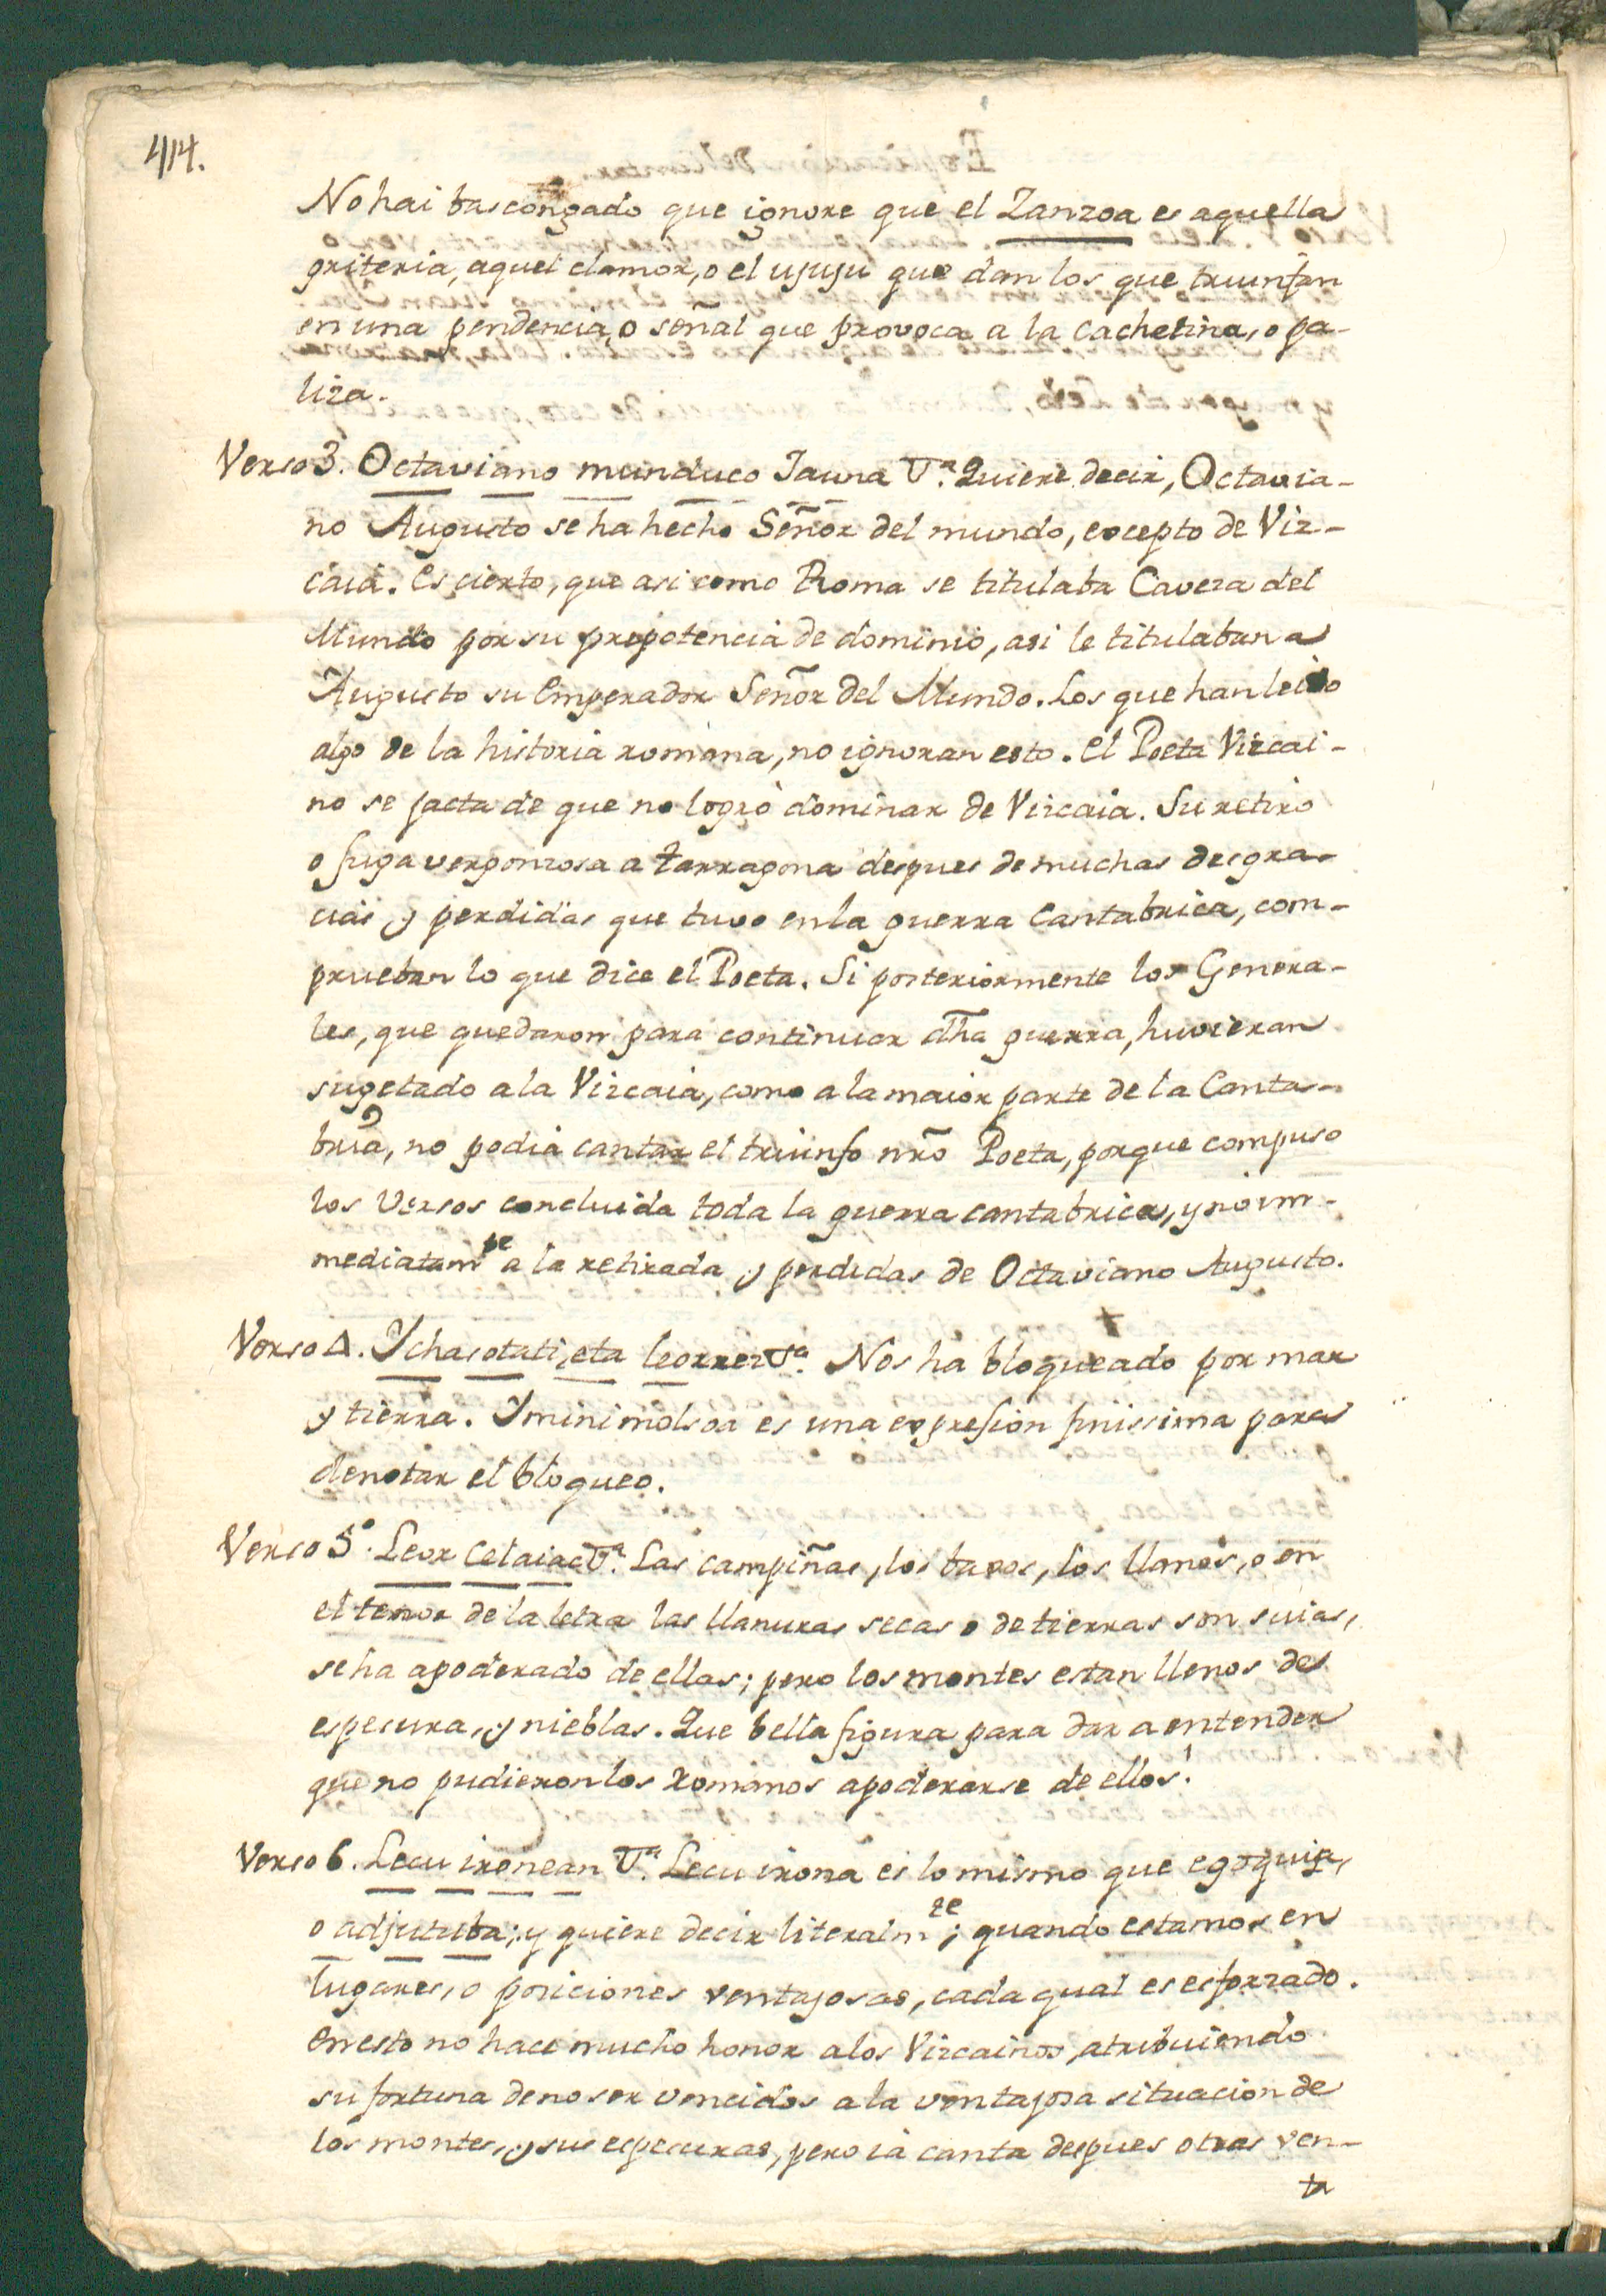 414.
No hai bascongado que ignore que el Zanzoa es aquella
griteria, aquel clamor, o el ujuju que dan los que triunfan
en una pendencia, o señal que provoca a la cachetina, o pa-
liza.
Verso 3. Octaviano munduco Jauna Vª. Quiere decir, Octavia-
no Augusto se ha hecho Señor del mundo, excepto de Viz-
caia. Es cierto, que asi como Roma se titulaba Caveza del
Mundo por su prepotencia de dominio, asi le titulaban a
Augusto su Emperador Señor del Mundo. Los que han leido
algo de la historia romana, no ignoran esto. El Poeta Vizcai-
no se jacta de que no logrò dominar de Vizcaia. Su retiro
o fuga vergonzosa a tarragona despues de muchas desgra-
cias y perdidas que tuvo en la guerra Cantabrica, com-
prueban lo que dice el Poeta. Si posteriormente los Genera-
les, que quedaron para continuar dha guerra, huvieran
sugetado a la Vizcaia, como a la maior parte de la Canta-
bria, no podia cantar el triunfo nro Poeta, porque compuso
los Versos concluida toda la guerra cantabrica, y no inm-
mediatamte a la retirada y perdidas de Octaviano Augusto.
Verso 4. Ychasotati, eta leorrez Vª. Nos ha bloqueado por mar
y tierra. Yminimolsoa es una expresion finissima para
denotar el bloqueo.
Verso 5º. Leor Celaiac Vª. Las campiñas, los baxos, los llanos, o en
el tenor de la letra las llanuras secas o de tierras son suias,
se ha apoderado de ellas; pero los montes estan llenos de
espesura, y nieblas. Que bella figura para dar a entender
que no pudieron los Romanos apoderarse de ellos!
Verso 6. Lecu ironean Vª. Lecu irona es lo mismo que egoquija,
o adjutuba; y quiere decir literalmte; quando estamos en
lugares, o posiciones ventajosas, cada qual es esforzado.
En esto no hace mucho honor a los Vizcainos, atribuiendo
su fortuna de no ser vencidos a la ventajosa situacion de
los montes, y sus espesuras, pero ià canta despues otras ven-
ta